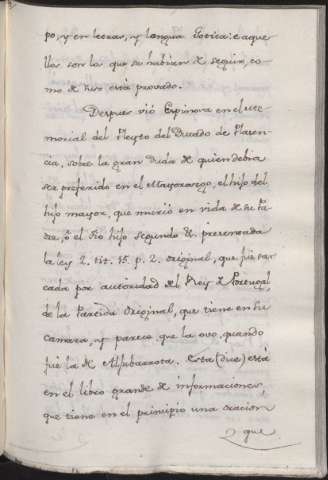 po, y en letras, y lengua Gotica: e aque
llas son las que se habian de seguir, co
mo de hur está provado.
Despues vió Espinosa en el me
morial del Pleyto del Ducado de Plasen
cia, sobre la gran duda de quien debia
ser preferido en el Mayorazgo, el hijo del
hijo mayor, que murió en vida de su Pa
dre, ó el tio hijo segundo &. presentada
la ley 2. tit. 15. p. 2. original, que fué sa
cada por autoridad del Rey de Portugal
de la Partida Original, que tiene en su
camara, y parece que la ovo, quando
fué la de Aljubarrota. Esta (dice) está
en el libro grande de informaciones,
que tiene en el principio una oracion
que